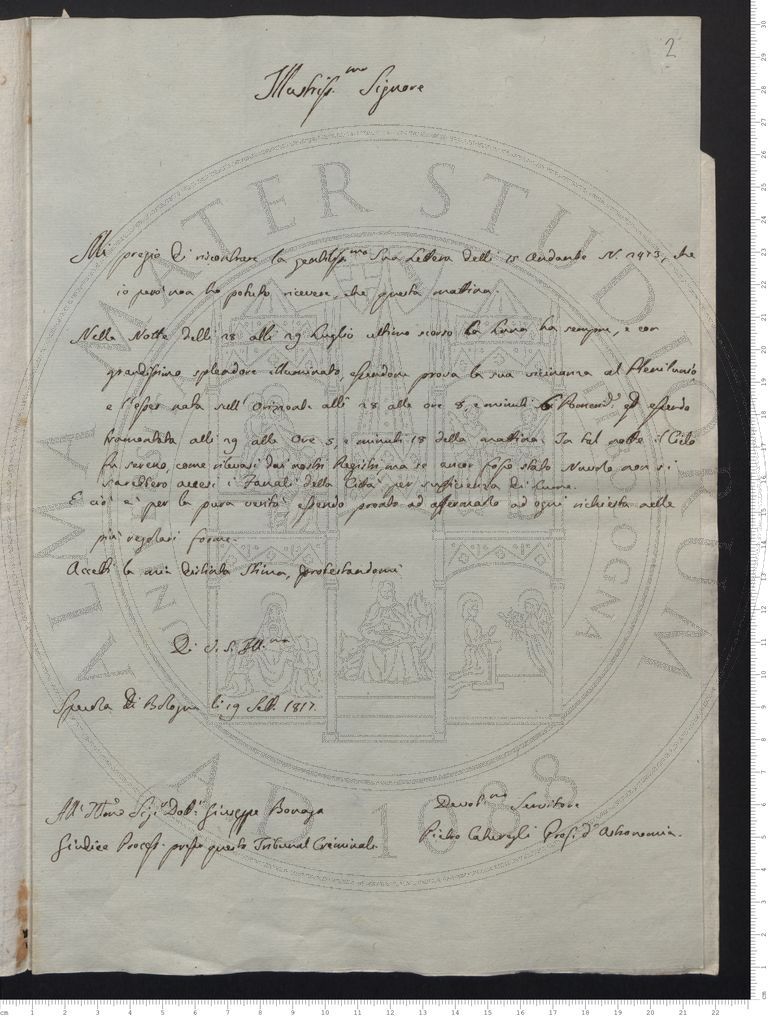 2
Illustriss.mo Signore
Mi pregio di riscontrare la gentiliss.mo Sua Lettera delli 15 andante N. 2473, che
io però non ho potuto ricevere, che questa mattina.
Nella Notte delli 28 alli 29 Luglio ultimo scorso la Luna ha sempre, e con
grandissimo splendore illuminato, essendone prova la sua vicinanza al Plenilunio,
e l'esser nata sull'Orizonte alli 28 alle ore 8, e minuti 6 Pomerid.e ed essendo
tramontata alli 29 alle Ore 5, e minuti 18 della mattina. In tal notte il Cielo
fu sereno, come rilevasi dai nostri Registri, ma se ancor fosse stato Nuvolo non si
sarebbero accesi i Fanali della Città per sufficienza di Lume.
E ciò è per la pura verità essendo pronto ad affermarlo ad ogni richiesta nelle
più regolari forme.
Accetti la mia distinta stima, protestandomi
Di V. S. Ill.ma
Specola di Bologna li 19 Sett. 1817.
All' Ill.mo Sig.r Dott.r Giuseppe Bonaga
Giudice Process. presso questo Tribunal Criminale
Devot.mo Servitore
Pietro Caturegli Prof. d'Astronomia.
ALMA MATER STUDIORUM
A.D. 1088